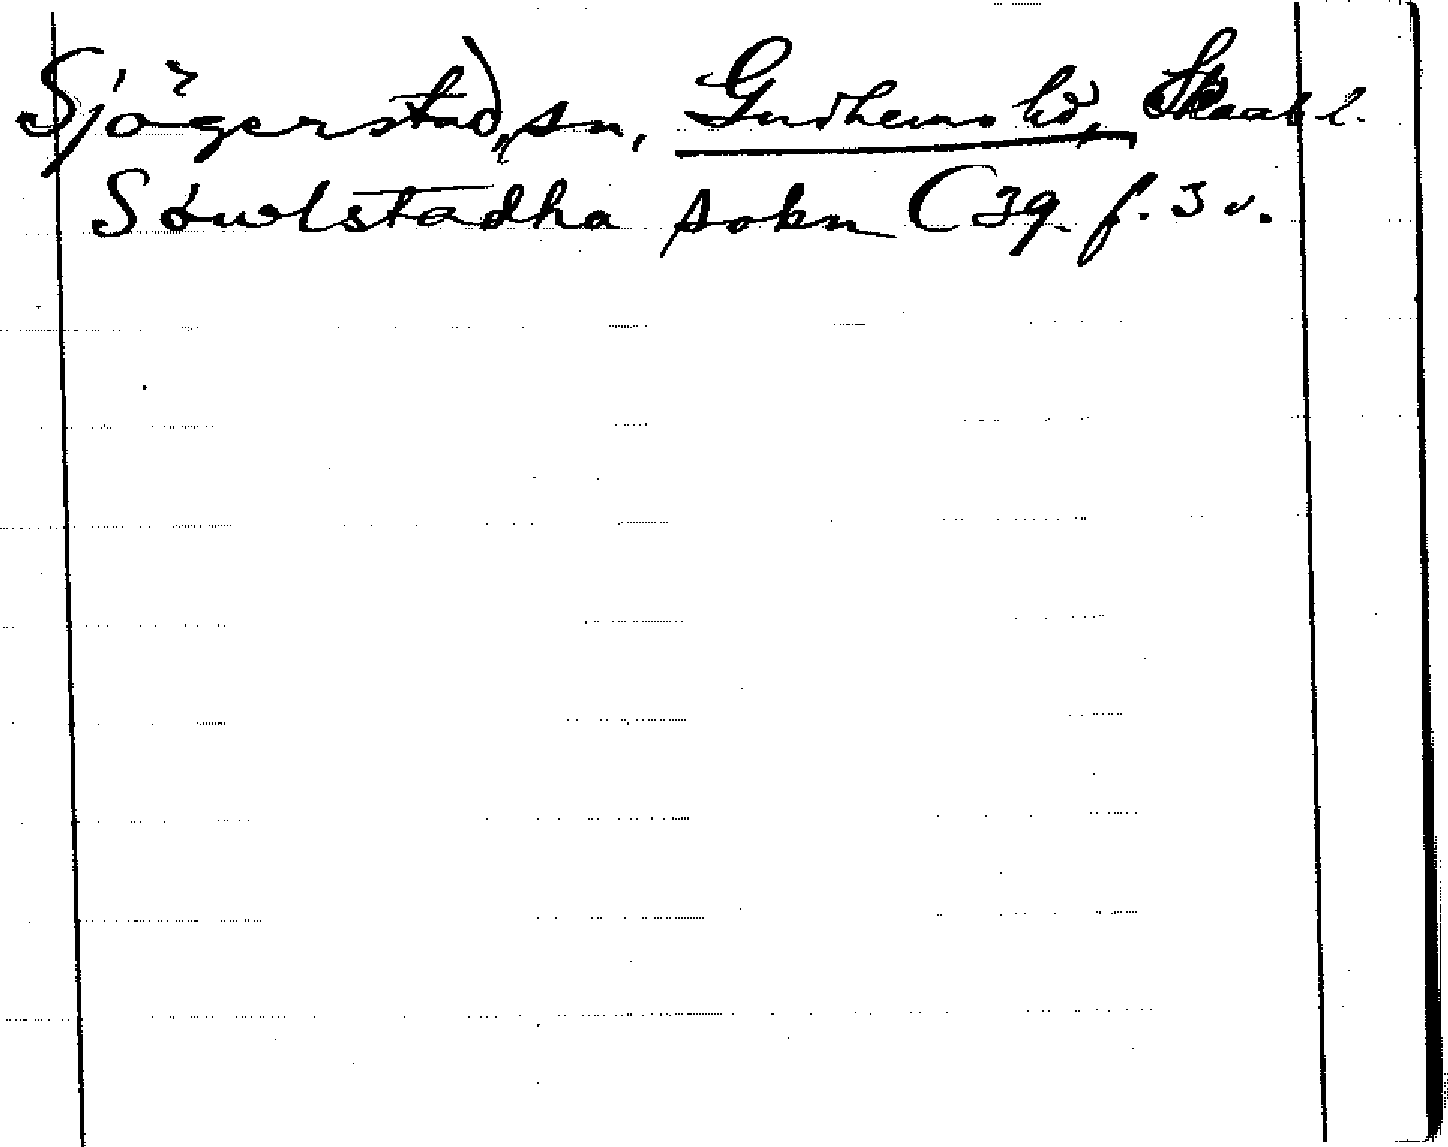 Sjögerstad, sn, Gudhems hd, Skaab l.
Sówlstadha sokn C 39 f. 3 v.